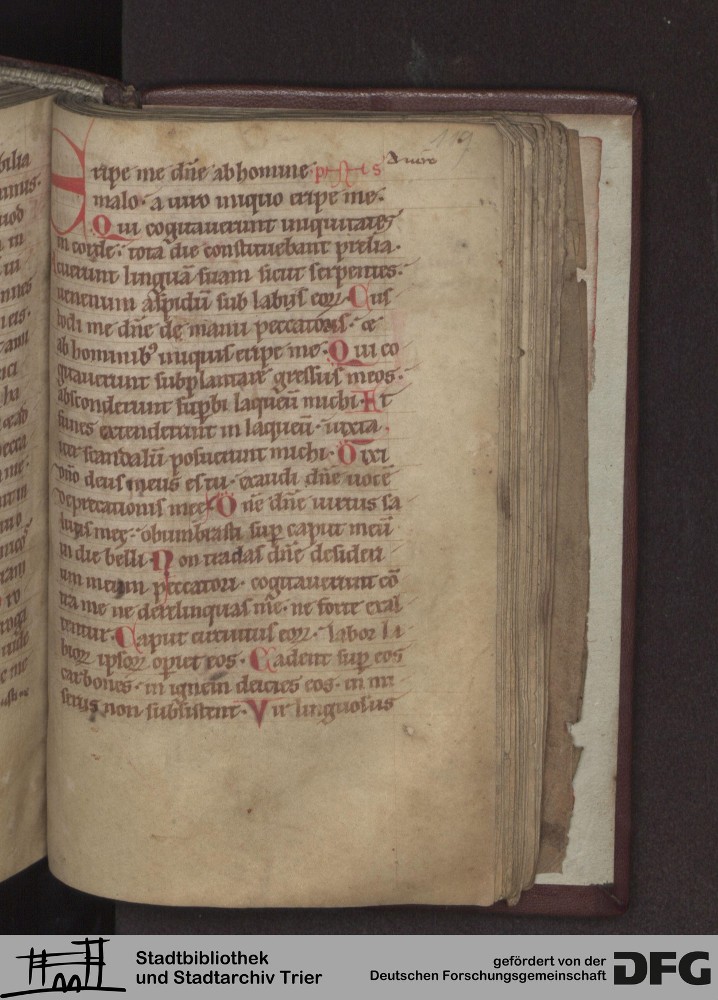 Eripe me dñe ab homine
malo· a uiro iniquo eripe me·
Qui cogitauerunt iniquitates
in corde· tota die constituebant prelia·
Acuerunt linguā suam sicut serpentes·
uenenum aspidū sub labijs eoꝝ· Cus
todi me dñe de manu peccatoris· &
ab hominibꝰ iniquis eripe me· Qui co
gitauerunt subplantare gressus meos·
absconderunt suꝑbi laqueū michi· Et
funes extenderunt in laqueū· iuxta
iter scandalū posuerunt michi· Dixi
dño deus meus es tu· exaudi dñe uocē
deprecationis meę· Dñe dñe uirtus sa
lutis meę· obumbrasti suꝑ caput meū
in die belli· Non tradas dñe desideri
um meum peccatori· cogitauerunt cō
tra me ne derelinquas me· ne forte exal
tentur· Caput circuitus eoꝝ· labor la
bioꝝ ipsoꝝ operiet eos· Cadent suꝑ eos
carbones· in ignem deicies eos· in mi
seriis non subsistent· Vir linguosus
119
Stadtbibliothek
und Stadtarchiv Trier
gefördert von der
Deutschen Forschungsgemeinschaft
DFG